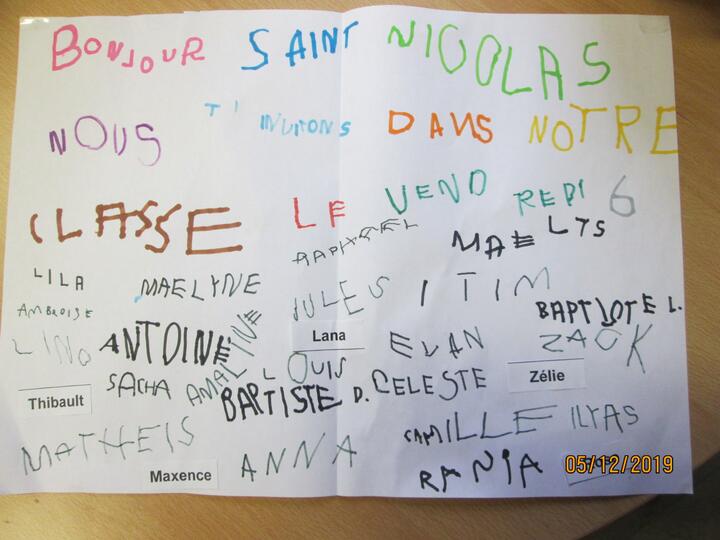 BONJOUR SAINT NICOLAS
NOUS T'INVITONS DANS NOTRE
CLASSE LE VENDREDI 6
RAPHAEL MAELYS
LILA MAELYNE JULES TIM
AMBROISE BAPTISTE L.
LINO ANTOINE AMALYNE Lana EVAN ZACK
Thibault SACHA LOUIS BAPTISTE D. CELESTE Zélie
MATHEIS CAMILLE ILYAS
Maxence ANNA RANIA
05/12/2019